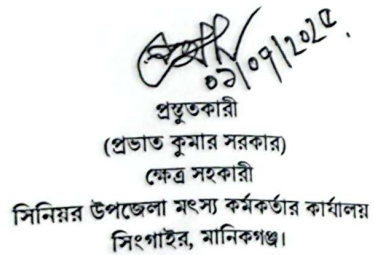 ০১/০৭/২০২৫
প্রস্তুতকারী
(প্রভাত কুমার সরকার)
ক্ষেত্র সহকারী
সিনিয়র উপজেলা মৎস্য কর্মকর্তার কার্যালয়
সিংগাইর, মানিকগঞ্জ।